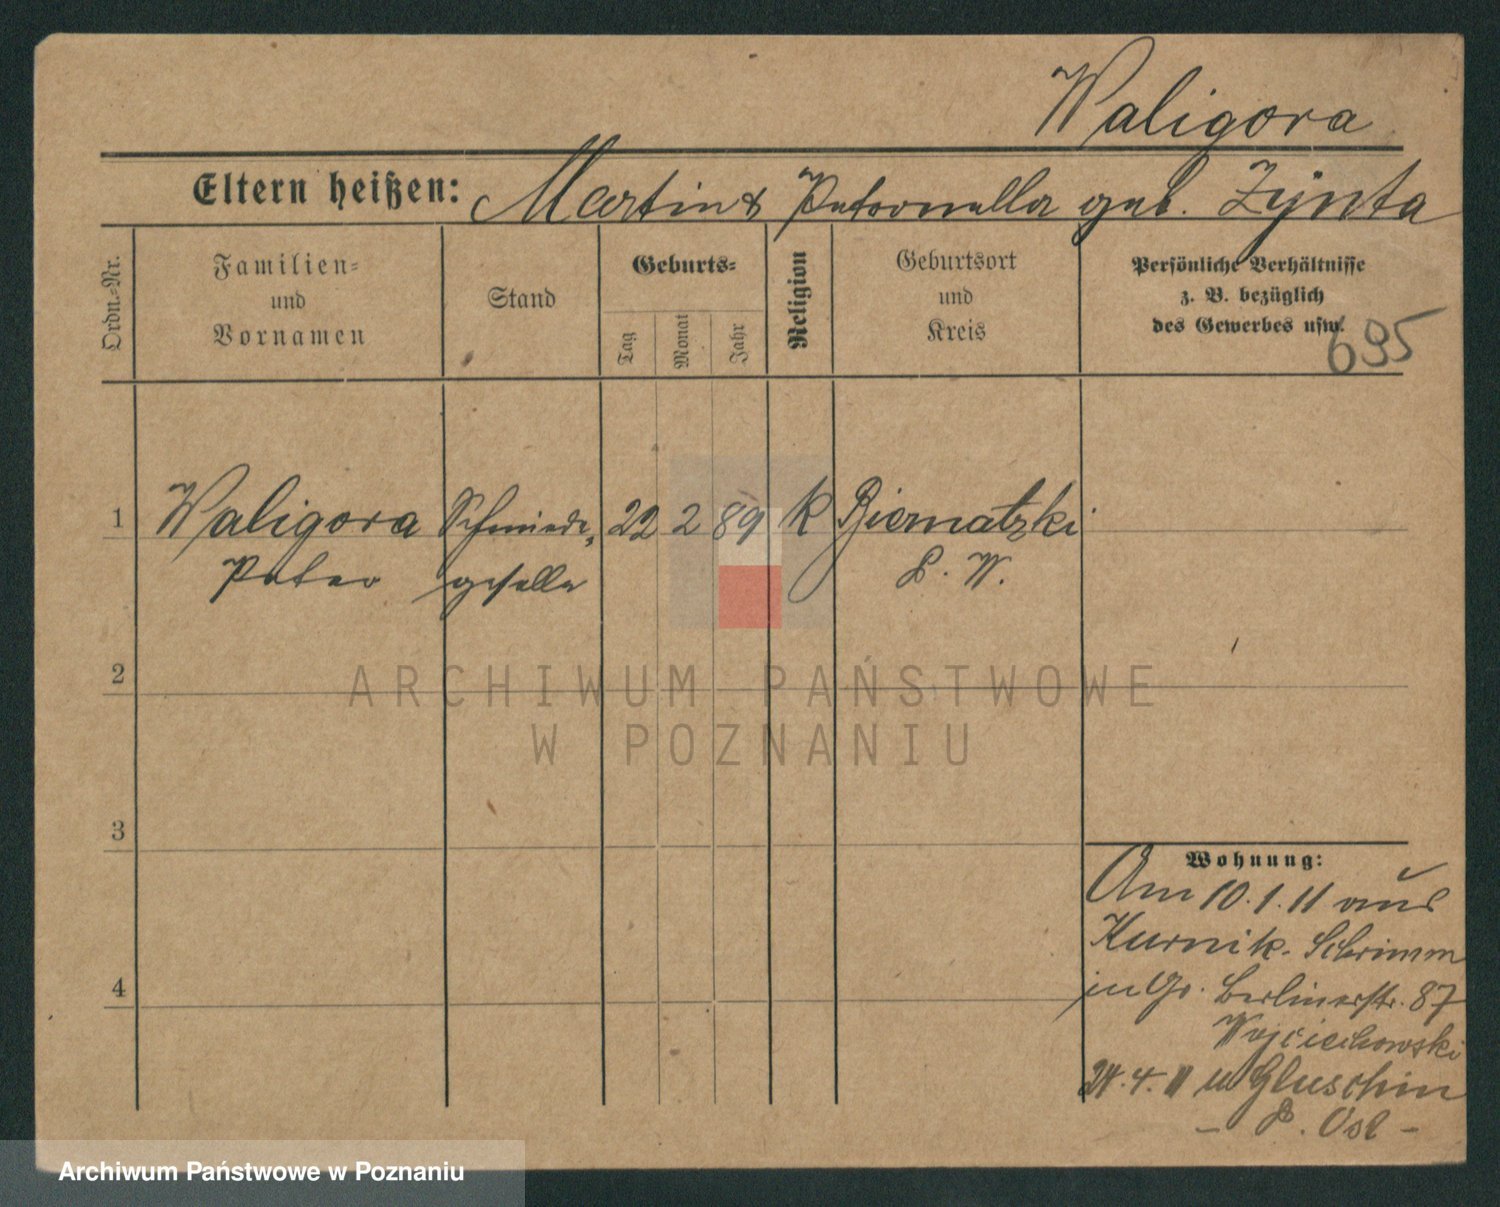 Waligora
Eltern heißen: Martin & Petronella geb. Zynta
Ordn.-Nr.
Familien-
und
Vornamen
Stand
Geburts-
Tag
Monat
Jahr
Religion
Geburtsort
und
Kreis
Persönliche Verhältnisse
z. B. bezüglich
des Gewerbes usw.
695
1 Waligora Schmiede- 22 2 89 k Biernatzki
Peter geselle P. W.
2
ARCHIWUM PAŃSTWOWE
W POZNANIU
3
4
Wohnung:
Am 10.1.11 aus
Kurnik. Schrimm
in Berlinerstr. 87
Wojciechowski
4. 11 Gluschin
P. Ost -
Archiwum Państwowe w Poznaniu